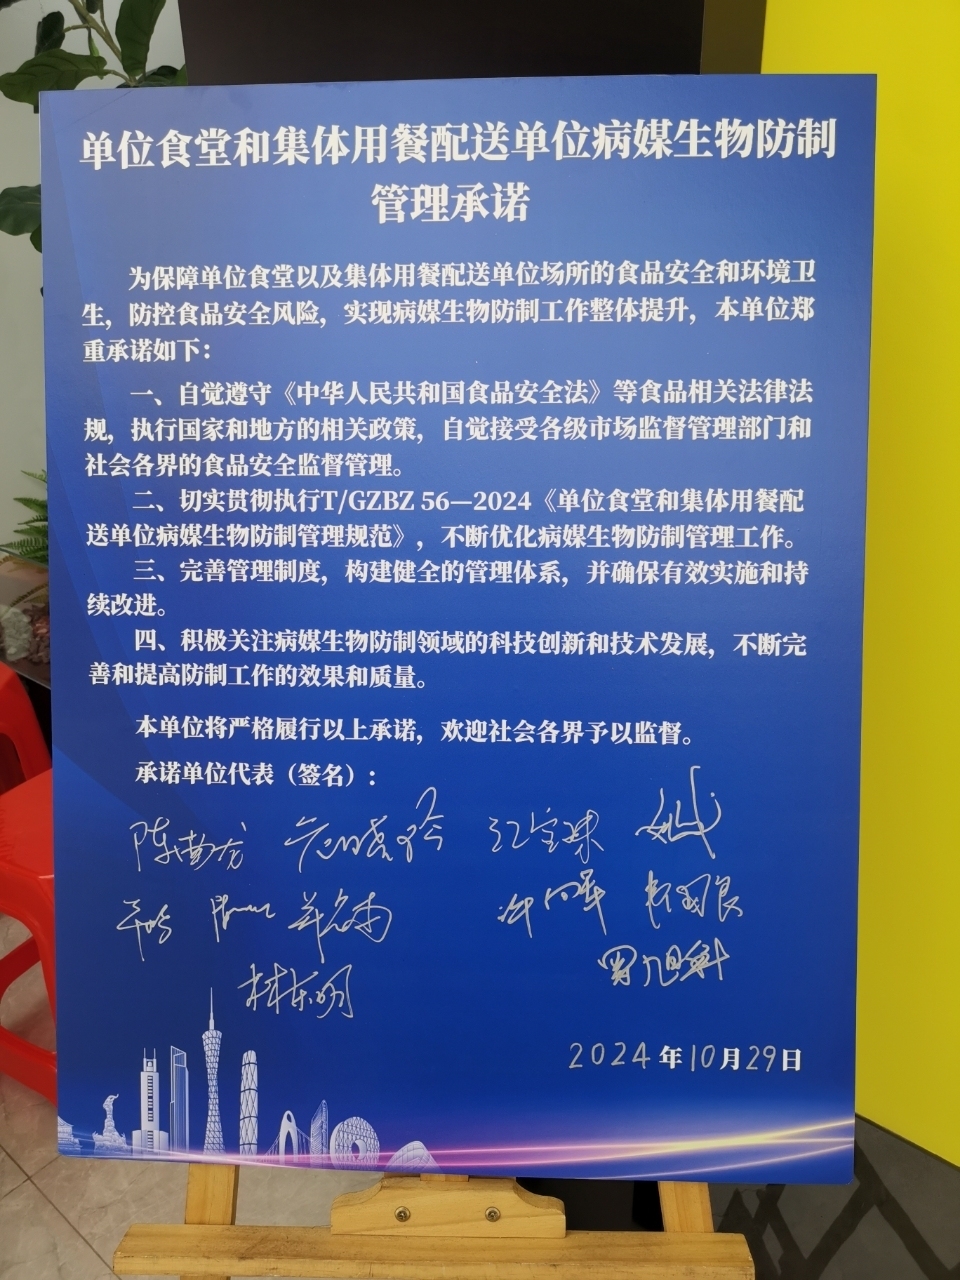 单位食堂和集体用餐配送单位病媒生物防制
管理承诺
为保障单位食堂以及集体用餐配送单位场所的食品安全和环境卫
生，防控食品安全风险，实现病媒生物防制工作整体提升，本单位郑
重承诺如下：
一、自觉遵守《中华人民共和国食品安全法》等食品相关法律法
规，执行国家和地方的相关政策，自觉接受各级市场监督管理部门和
社会各界的食品安全监督管理。
二、切实贯彻执行T/GZBZ 56—2024《单位食堂和集体用餐配
送单位病媒生物防制管理规范》，不断优化病媒生物防制管理工作。
三、完善管理制度，构建健全的管理体系，并确保有效实施和持
续改进。
四、积极关注病媒生物防制领域的科技创新和技术发展，不断完
善和提高防制工作的效果和质量。
本单位将严格履行以上承诺，欢迎社会各界予以监督。
承诺单位代表（签名）：
林东明
2024年10月29日